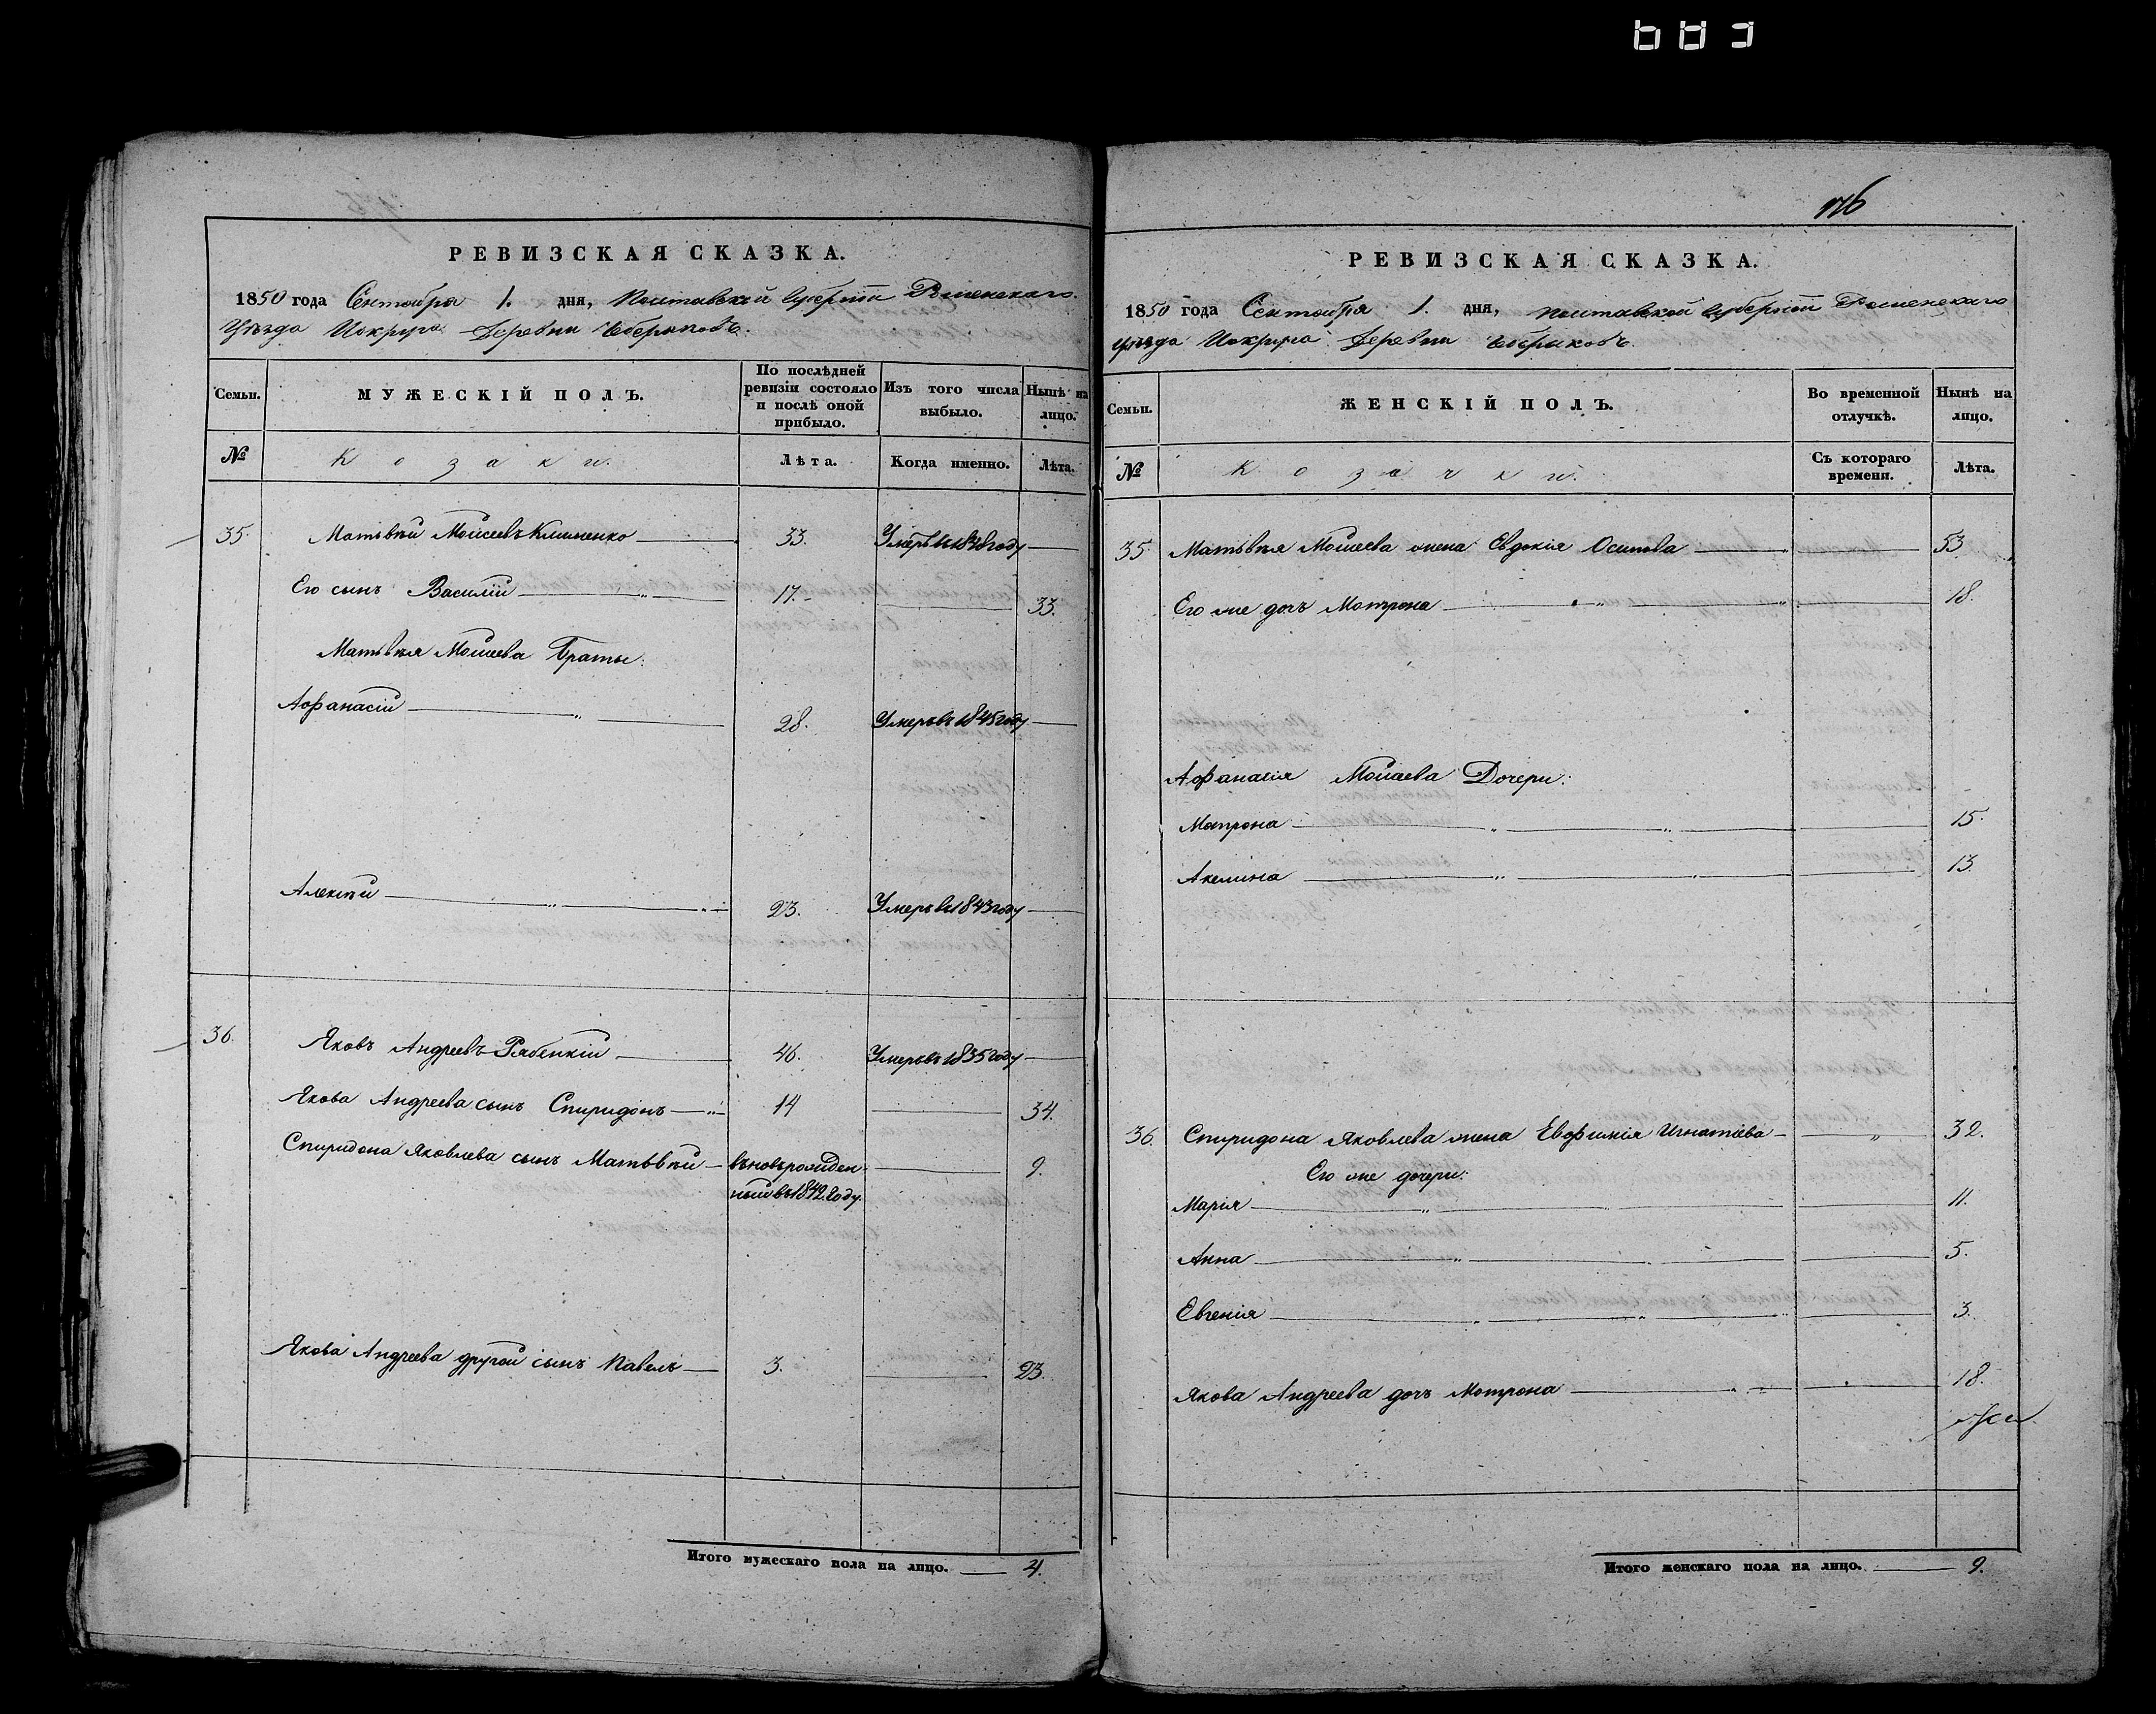 176
РЕВИЗСКАЯ СКАЗКА.
1850 года Сентября 1. дня, Полтавской Губернїи Роменскаго
Уѣзда Иокруга Деревни
Семьи.
МУЖЕСКІЙ ПОЛЪ.
По послѣдней ревизіи состояло и послѣ оной прибыло.
Изъ того числа выбыло.
Нынѣ на лицо.
№
Козаки.
Лѣта.
Когда именно.
Лѣта.
35. Матвѣй Моисеевъ Клименко 33. Умеръ въ 1838 году
Его сынъ Василій 17. 33.
Матвѣя Моисеева Братья:
Афанасій 28. Умеръ въ 1845 году
Алексѣй 23. Умеръ въ 1843 году
36. Яковъ Андреевъ Рябенкій 46. Умеръ въ 1835 году
Якова Андреева сынъ Спиридонъ 14 34.
Спиридона Яковлева сынъ Матвѣй вновьрожден- 9.
ный въ 1842 году.
Якова Андреева другой сынъ Павелъ 3. 23.
Итого мужескаго пола на лицо. 4.
РЕВИЗСКАЯ СКАЗКА.
1850 года Сентября 1. дня, Полтавской Губернїи Роменскаго
уѣзда Иокруга Деревни
Семьи.
ЖЕНСКІЙ ПОЛЪ.
Во временной отлучкѣ.
Нынѣ на лицо.
№
Козачки.
Съ котораго времени.
Лѣта.
35. Матвѣя Моисеева жена Евдокія Осипова 53
Его же дочь Мотрона 18.
Афанасія Моисеева Дочери:
Мотрона 15.
Акелина 13.
36. Спиридона Яковлева жена Евфимія Игнатіева 32.
Его же дочери:
Марія 11.
Анна 5.
Евгенія 3.
Якова Андреева дочь Мотрона 18.
Итого женскаго пола на лицо. 9.